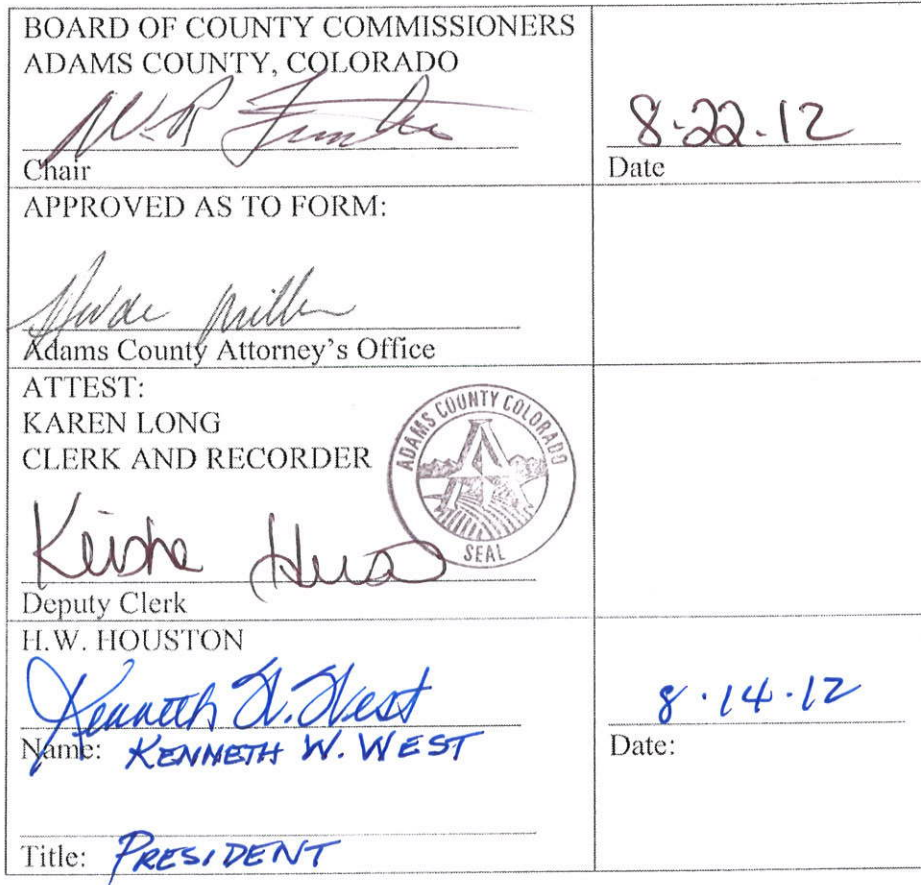 BOARD OF COUNTY COMMISSIONERS
ADAMS COUNTY, COLORADO
8-22-12
Chair
Date
APPROVED AS TO FORM:
Adams County Attorney's Office
ATTEST:
KAREN LONG
CLERK AND RECORDER
ADAMS COUNTY COLORADO
SEAL
Keisha
Deputy Clerk
H.W. HOUSTON
Kenneth W. West
8·14·12
Name: KENNETH W. WEST
Date:
Title: PRESIDENT